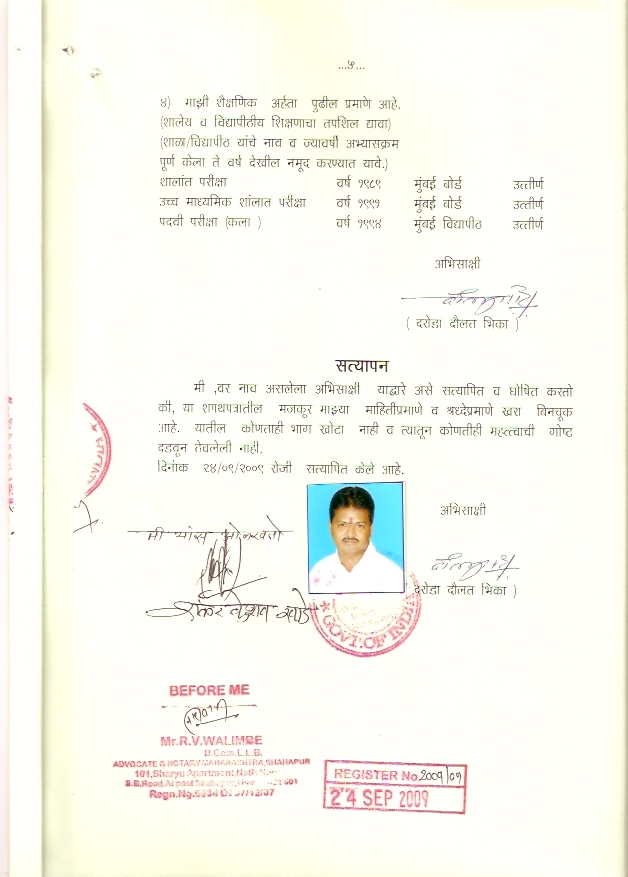 ...५...
४) माझी शैक्षणिक अर्हता पुढील प्रमाणे आहे.
(शालेय व विद्यापीठीय शिक्षणाचा तपशिल द्यावा)
(शाळा/विद्यापीठ यांचे नाव व ज्यावर्षी अभ्यासक्रम
पूर्ण केला ते वर्ष देखील नमूद करण्यात यावे.)
शालांत परीक्षा वर्ष १९८९ मुंबई बोर्ड उत्तीर्ण
उच्च माध्यमिक शांलात परीक्षा वर्ष १९९१ मुंबई बोर्ड उत्तीर्ण
पदवी परीक्षा (कला ) वर्ष १९९४ मुंबई विद्यापीठ उत्तीर्ण
अभिसाक्षी
( दरोडा दौलत भिका )
सत्यापन
मी ,वर नाव असलेला अभिसाक्षी याद्वारे असे सत्यापित व घोषित करतो
की, या शपथपत्रातील मजकूर माझ्या माहितीप्रमाणे व श्रध्देप्रमाणे खरा बिनचूक
आहे. यातील कोणताही भाग खोटा नाही व त्यातून कोणतीही महत्त्वाची गोष्ट
दडवून ठेवलेली नाही.
दिनांक २४/०९/२००९ रोजी सत्यापित केले आहे.
अभिसाक्षी
मी यांस ओळखतो
( दरोडा दौलत भिका )
GOVT.OF INDIA
BEFORE ME
Mr.R.V.WALIMBE
B.Com.L.L.B.
ADVOCATE & NOTARY MAHARASHTRA,SHAHAPUR
101,Sharyu Apartment,
S.B.Road,At post Shahapur, 421 601
REGISTER No. 2009/09
24 SEP 2009